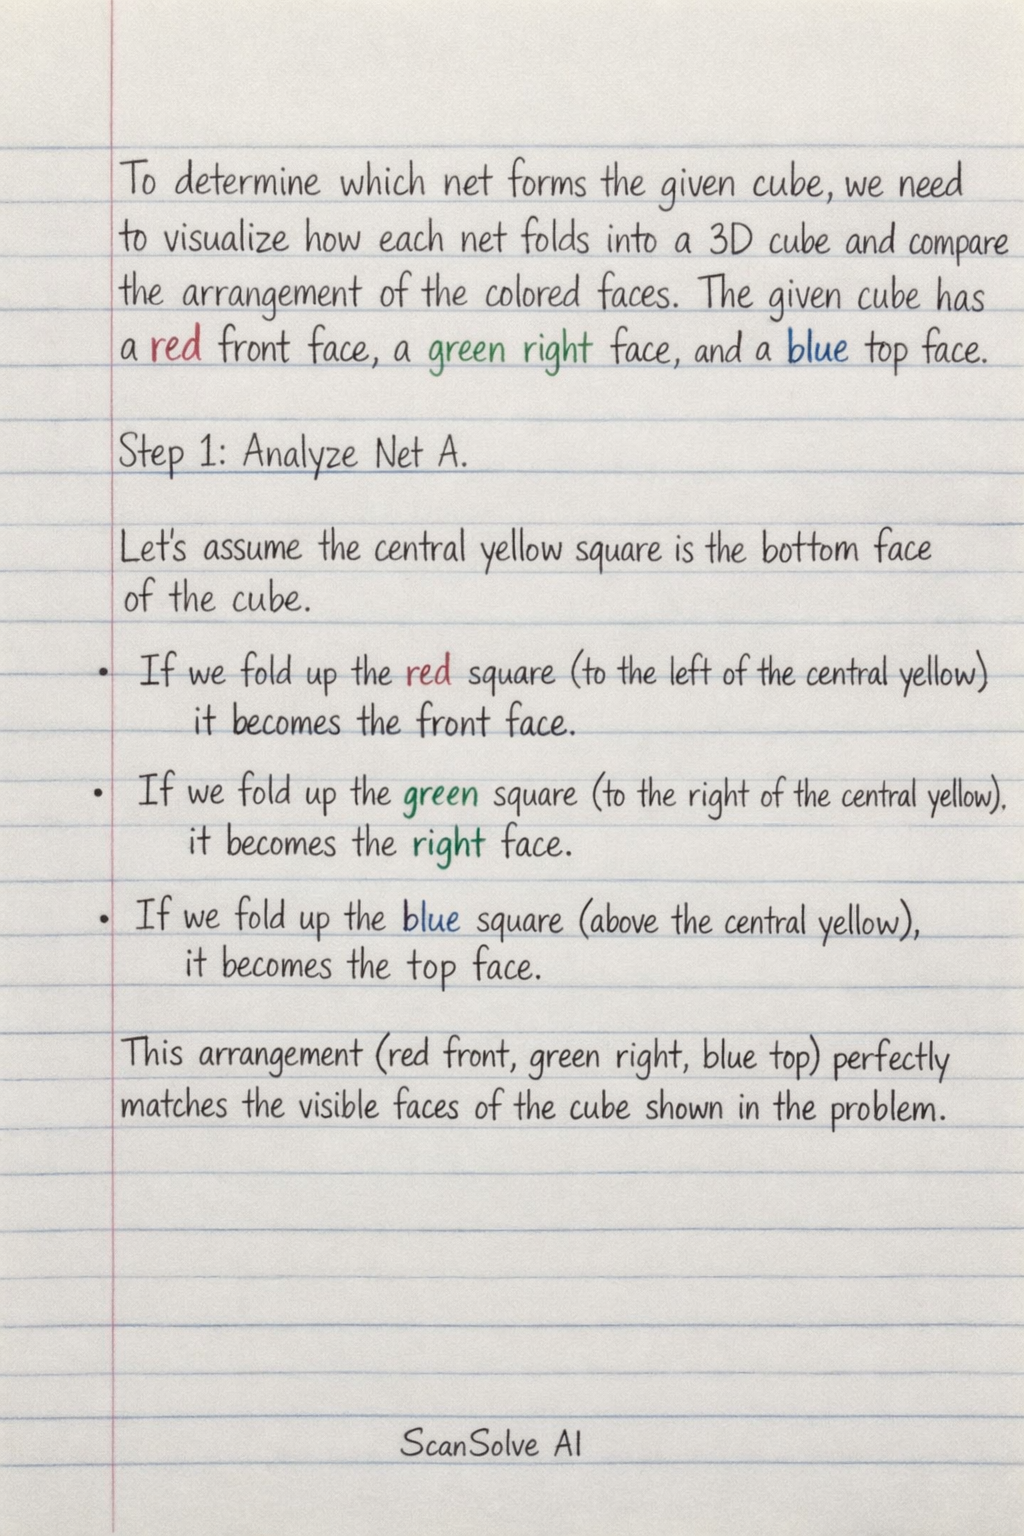 To determine which net forms the given cube, we need
to visualize how each net folds into a 3D cube and compare
the arrangement of the colored faces. The given cube has
a red front face, a green right face, and a blue top face.
Step 1: Analyze Net A.
Let's assume the central yellow square is the bottom face
of the cube.
• If we fold up the red square (to the left of the central yellow)
it becomes the front face.
• If we fold up the green square (to the right of the central yellow).
it becomes the right face.
• If we fold up the blue square (above the central yellow),
it becomes the top face.
This arrangement (red front, green right, blue top) perfectly
matches the visible faces of the cube shown in the problem.
ScanSolve AI